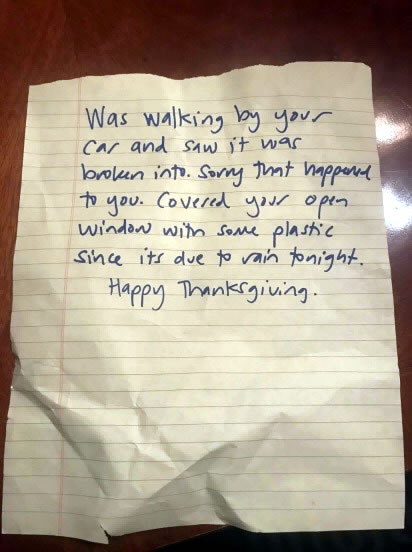 Was walking by your
car and saw it was
broken into. Sorry that happened
to you. Covered your open
window with some plastic
since its due to rain tonight.
Happy Thanksgiving.